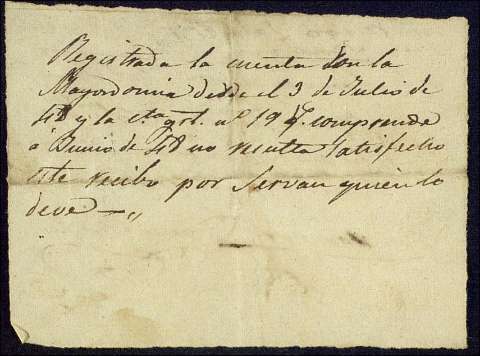 Registrada la cuenta con la
Mayordomia desde el 3 de Julio de
48 y la cta grl. nº 19 q. comprende
a Junio de 48 no resulta satisfecho
este recibo por Servan quien lo
deve —„